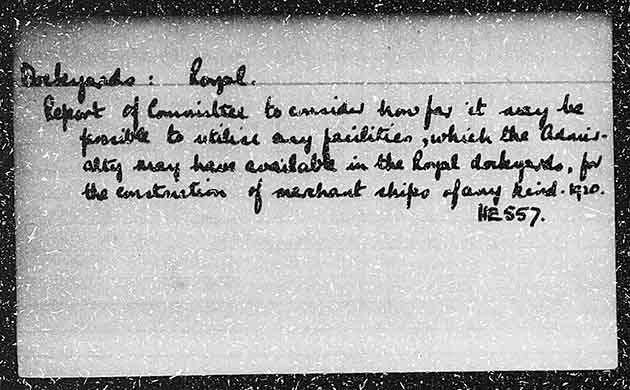 Dockyards: Royal.
Report of Committee to consider how far it may be
possible to utilise any facilities, which the Admir-
alty may have available in the Royal dockyards, for
the construction of merchant ships of any kind. 1920.
HE557.